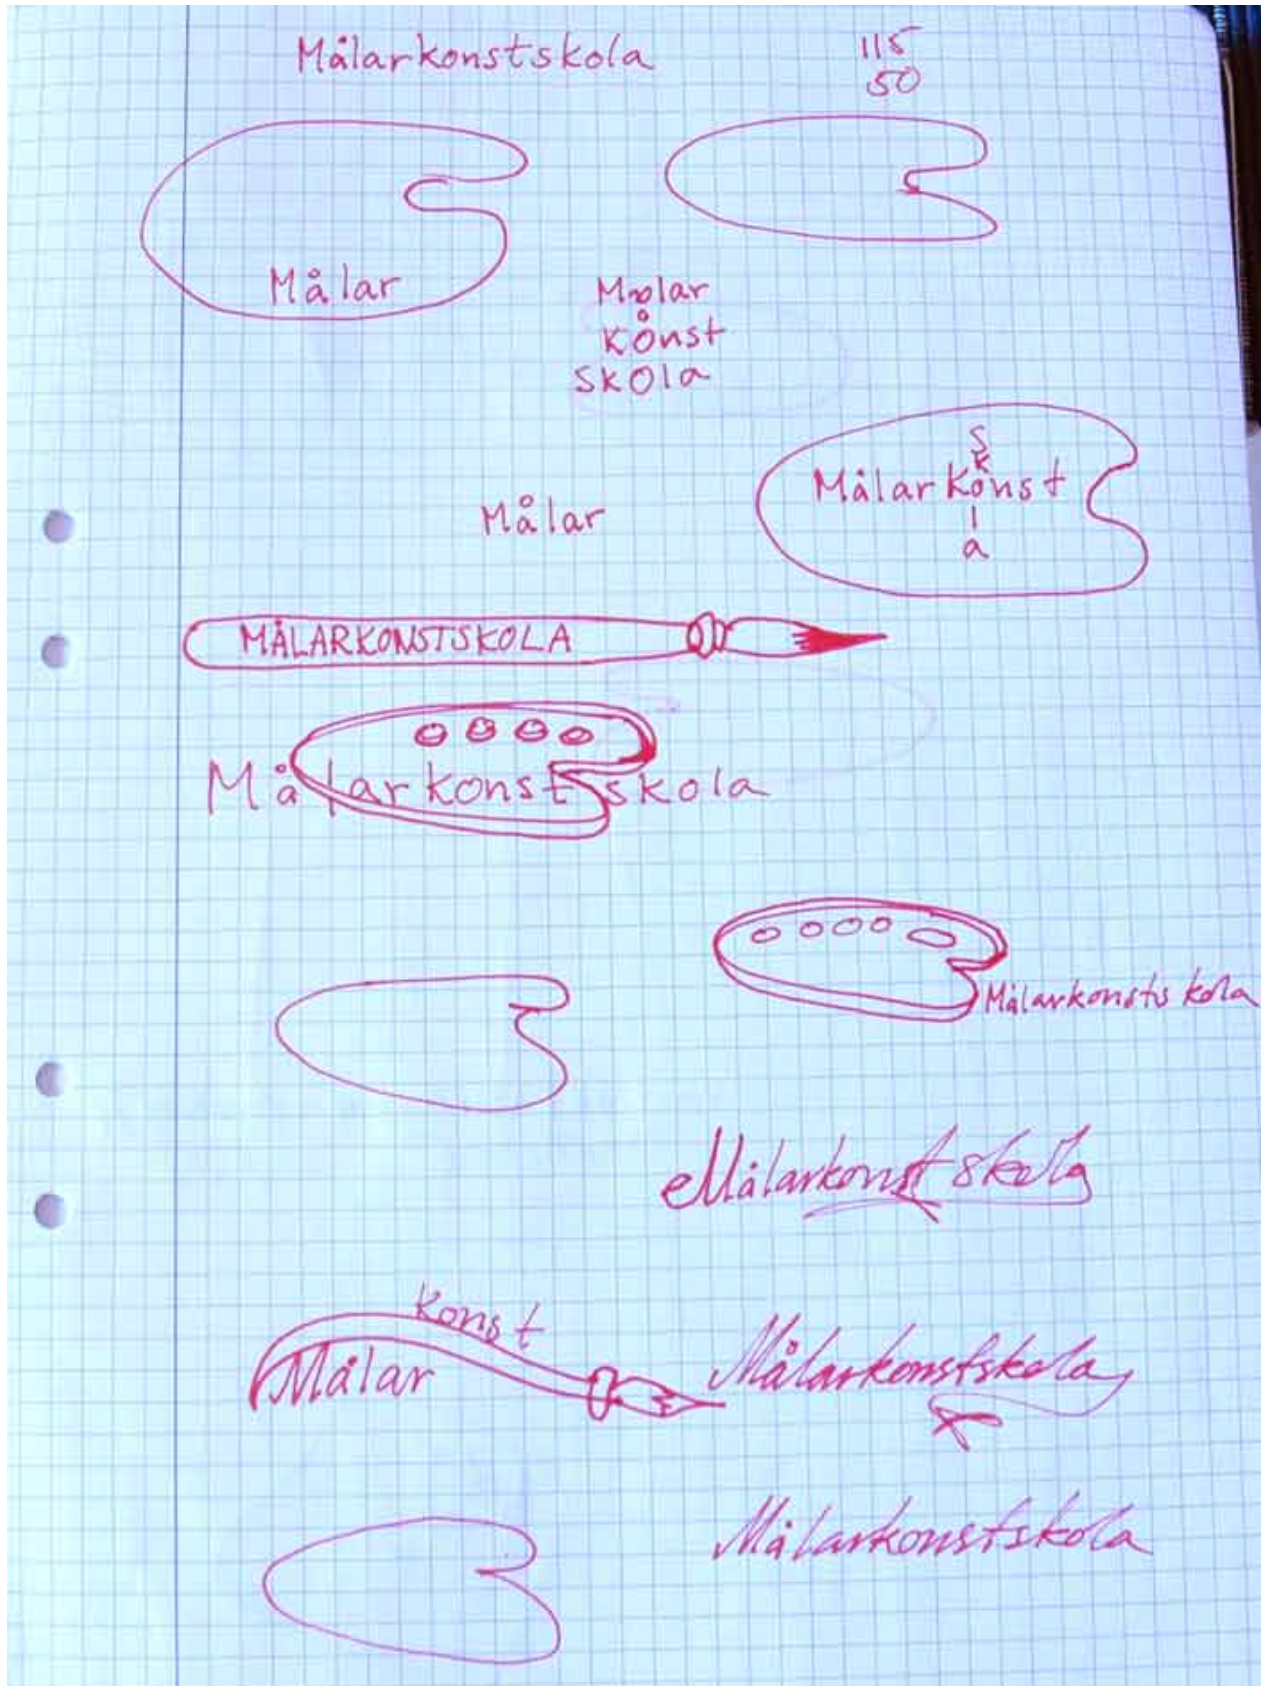 Målarkonstskola
115
50
Målar
Målar
Konst
SKOla
S
k
Målarkonst
l
a
Målar
MÅLARKONSTSKOLA
Målarkonstskola
Målarkonstskola
Målarkonstskola
Konst
Målar
Målarkonstskola
Målarkonstskola